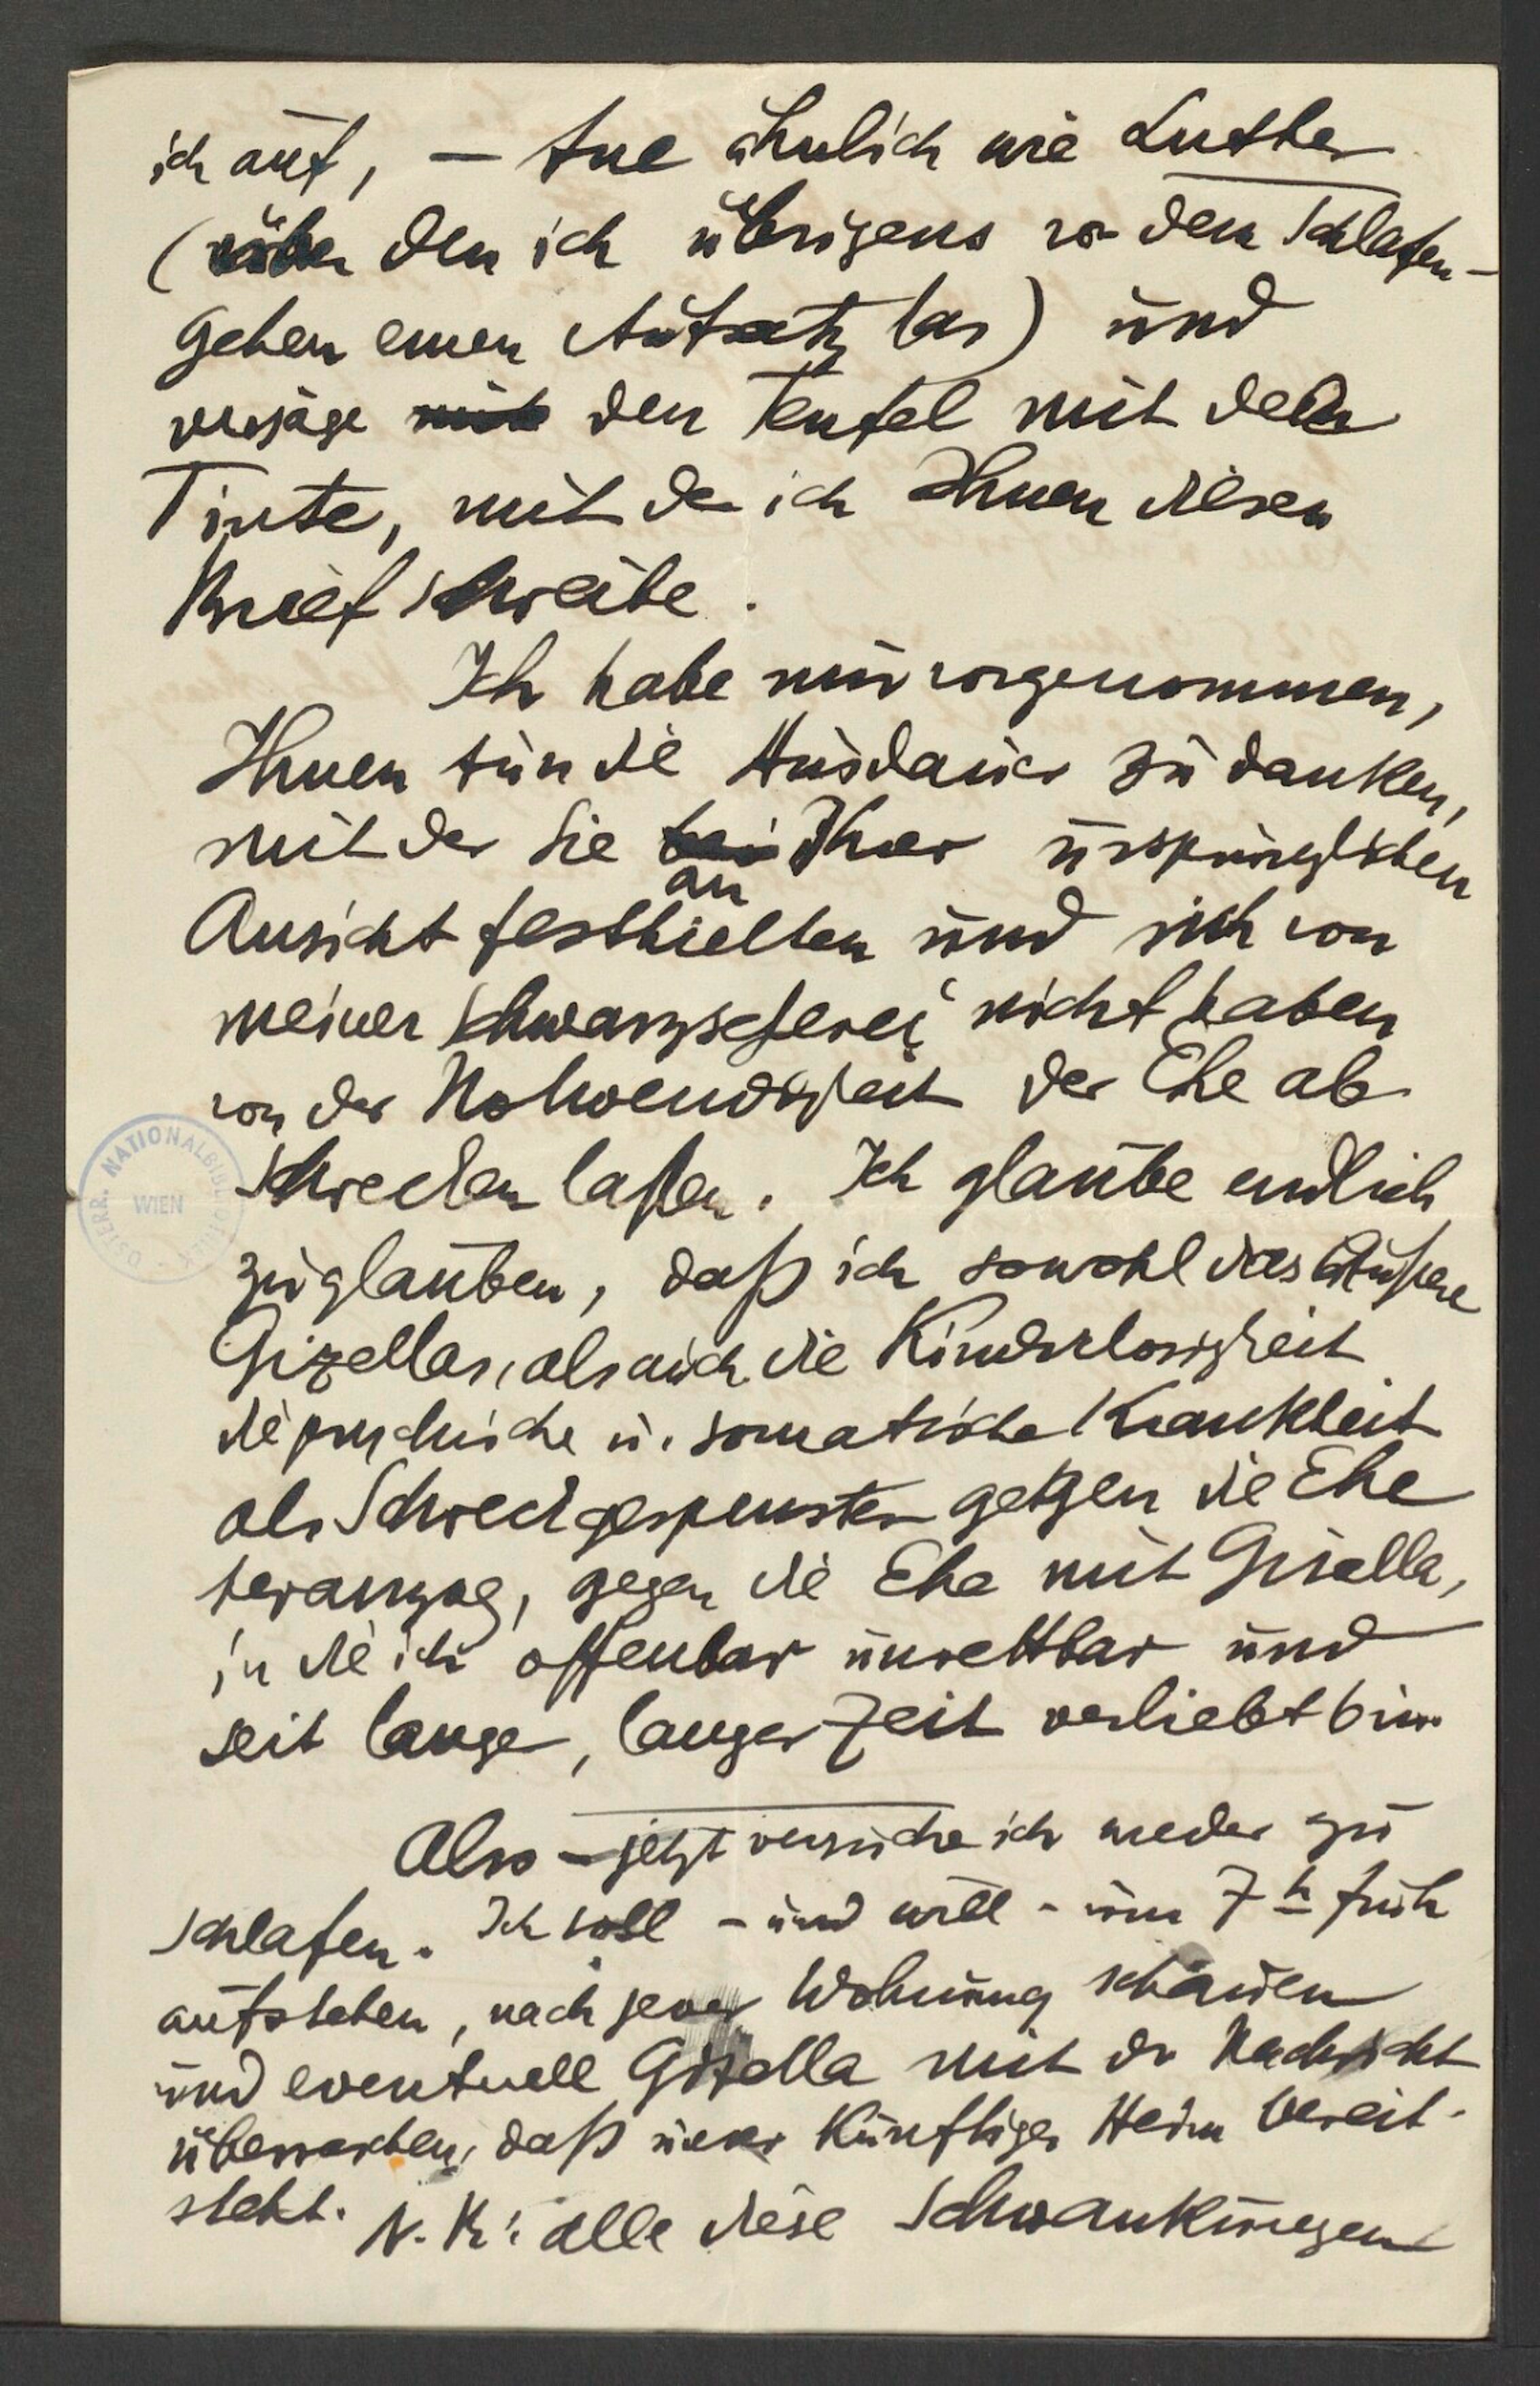 ich auf, – tue ähnlich wie Luther
(über den ich übrigens vor dem Schlafen-
gehen einen Aufsatz las) und
verjage den Teufel mit der
Tinte, mit der ich Ihnen diesen
Brief schreibe.
Ich habe mir vorgenommen,
Ihnen für die Ausdauer zu danken,
mit der Sie bei Ihrer ursprünglichen
an
Ansicht festhielten und sich von
meiner Schwarzseherei nicht haben
von der Notwendigkeit der Ehe ab
schrecken lassen. Ich glaube endlich
zu glauben, daß ich sowohl das Äußere
Gizellas, als auch die Kinderlosigkeit
die psychische u. somatische Krankheit
als Schreckgespenster gegen die Ehe
heranzog, gegen die Ehe mit Gisella,
in die ich offenbar unrettbar und
seit langer, langer Zeit verliebt bin.
Also – jetzt versuche ich wieder zu
schlafen. Ich soll – und will – um 7 h früh
aufstehen, nach jener Wohnung schauen
und eventuell Gisella mit der Nachricht
überraschen, daß unser künftiges Heim bereit-
steht. N.B.: alle diese Schwankungen
ÖSTERR. NATIONALBIBLIOTHEK
WIEN